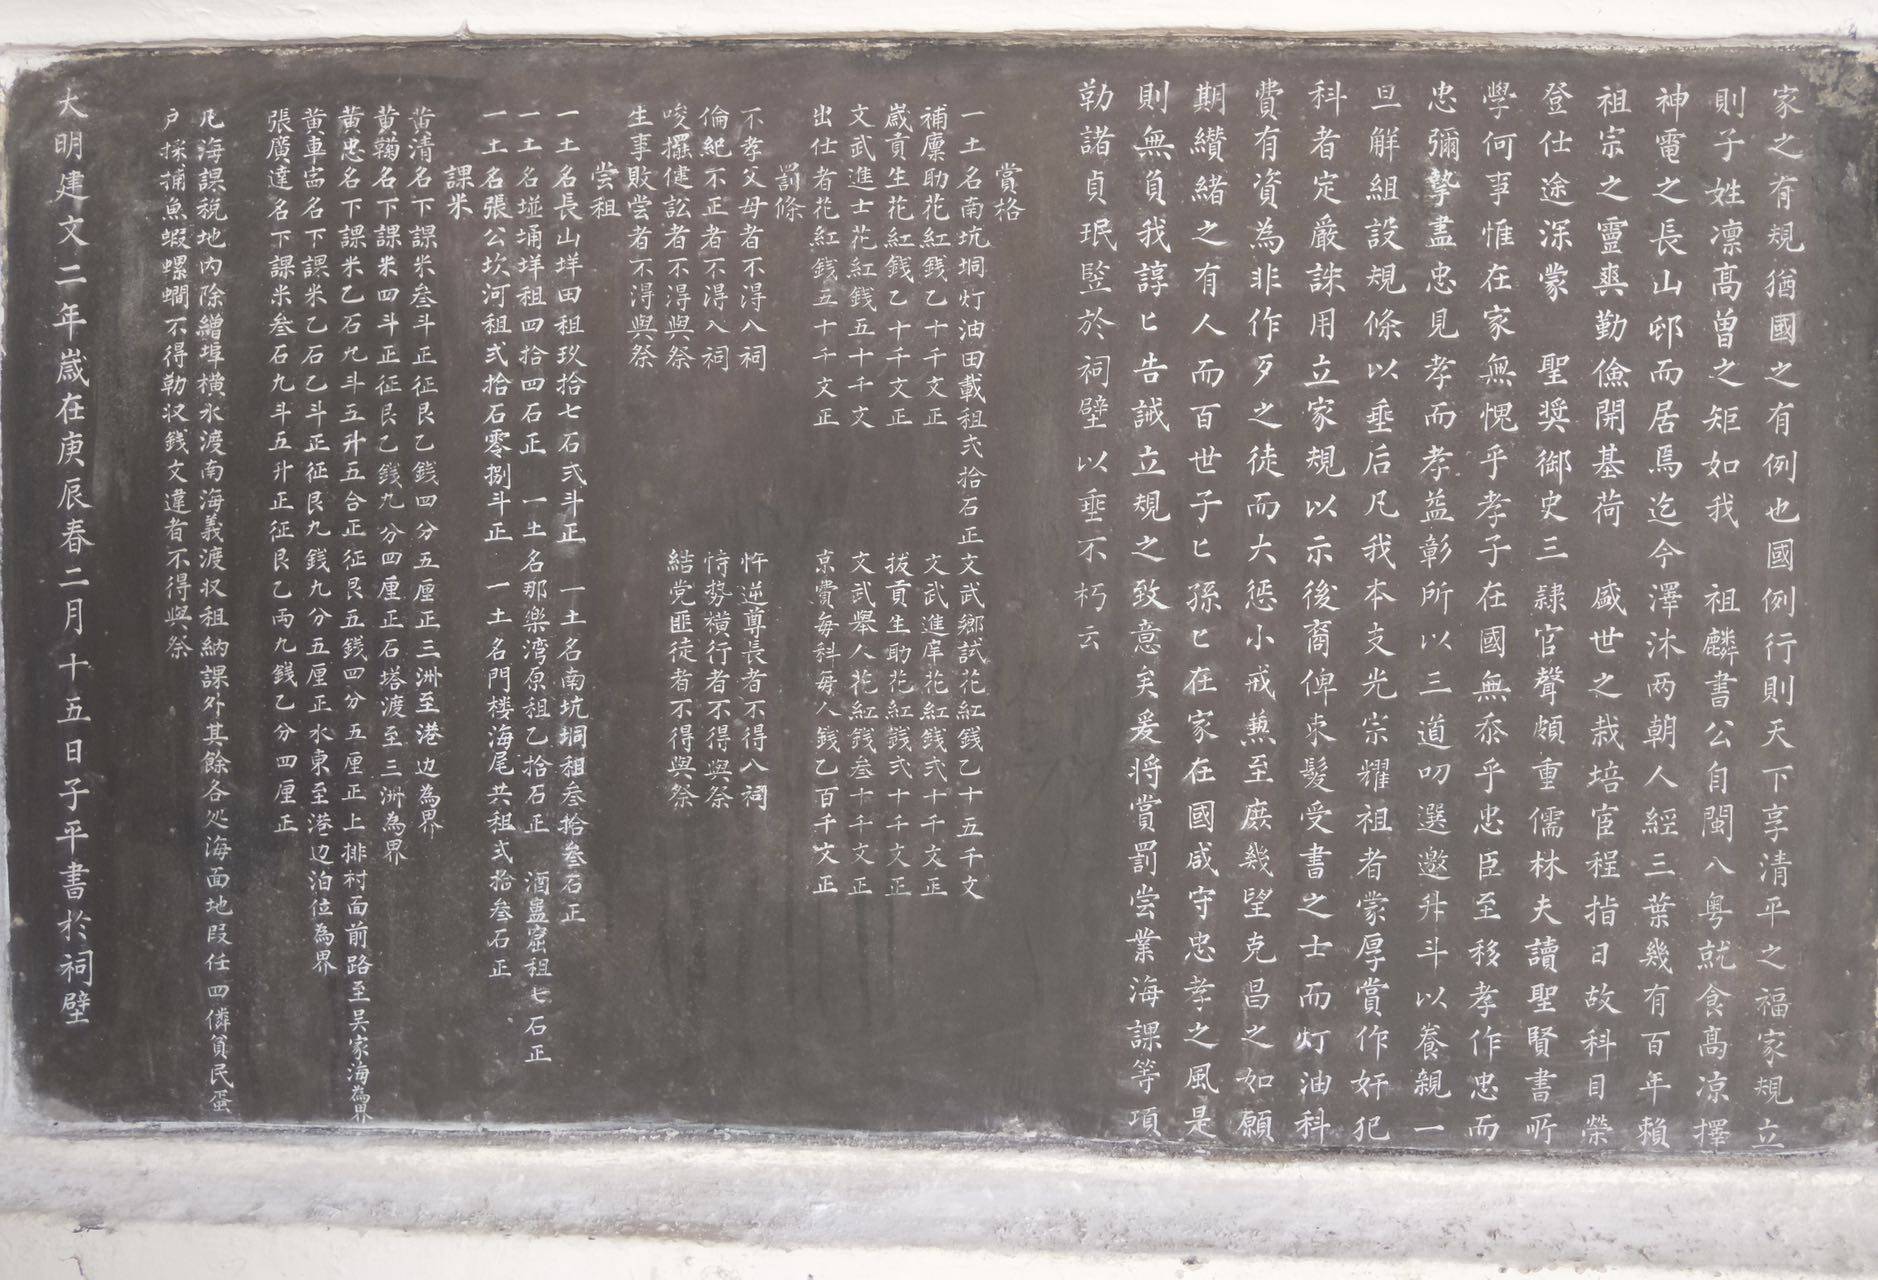 家之有規猶國之有例也國例行則天下享清平之福家規立
則子姓凛髙曽之矩如我 祖麟書公自閩入粵就食髙凉擇
神電之長山邨而居焉迄今澤沐两朝人經三葉幾有百年賴
祖宗之靈爽勤儉開基荷 盛世之栽培宦程指日故科目榮
登仕途深蒙 聖奨御史三隷官聲頗重儒林夫讀聖賢書所
學何事惟在家無愧乎孝子在國無忝乎忠臣至移孝作忠而
忠彌摯盡忠見孝而孝益彰所以三道叨選邀升斗以養親一
旦解組設規條以垂后凡我本支光宗耀祖者蒙厚賞作奸犯
科者定嚴誅用立家規以示後裔俾束髮受書之士而灯油科
費有資為非作歹之徒而大惩小戒䓪至庶幾望克昌之如願
期纘緒之有人而百世子匕孫匕在家在國咸守忠孝之風是
則無負我諄匕告誡立規之致意矣爰将賞罰尝業海課等項
勒諸貞珉竪於祠壁以垂不朽云
賞格
一土名南坑垌灯油田載租弍拾石正 文武鄉試花紅銭乙十五千文
補廩助花紅銭乙十千文正 文武進庠花紅銭弍十千文正
嵗貢生花紅銭乙十千文正 拔貢生助花紅銭弍十千文正
文武進士花紅銭五十千文 文武舉人花紅銭叁十千文正
出仕者花紅銭五十千文正 京費每科每人銭乙百千文正
罰條
不孝父母者不得入祠 忤逆尊長者不得入祠
倫紀不正者不得入祠 恃势横行者不得與祭
唆攞健訟者不得與祭 結党匪徒者不得與祭
生事敗尝者不得與祭
尝租
一土名長山垟田租玖拾七石弍斗正 一土名南坑垌租叁拾叁石正
一土名塸埇垟租四拾四石正 一土名那樂湾原租乙拾石正 酒蛊窟租七石正
一土名張公坎河租弍拾石零捌斗正 一土名門楼海尾共租弍拾叁石正
課米
黄清名下課米叁斗正征艮乙銭四分五厘正三洲至港边為界
黄蔼名下課米四斗正征艮乙銭九分四厘正石塔渡至三洲為界
黄忠名下課米乙石九斗五升五合正征艮五銭四分五厘正上排村面前路至吴家海為界
黄車畐名下課米乙石乙斗正征艮九銭九分五厘正水東至港边泊位為界
張廣達名下課米叁石九斗五升正征艮乙两九銭乙分四厘正
凡海課稅地内除繒埠横水渡南海義渡収租納課外其餘各処海面地段任四隣貧民蛋
户採捕魚蝦螺蠯不得勒収銭文違者不得與祭
大明建文二年嵗在庚辰春二月十五日子平書於祠壁